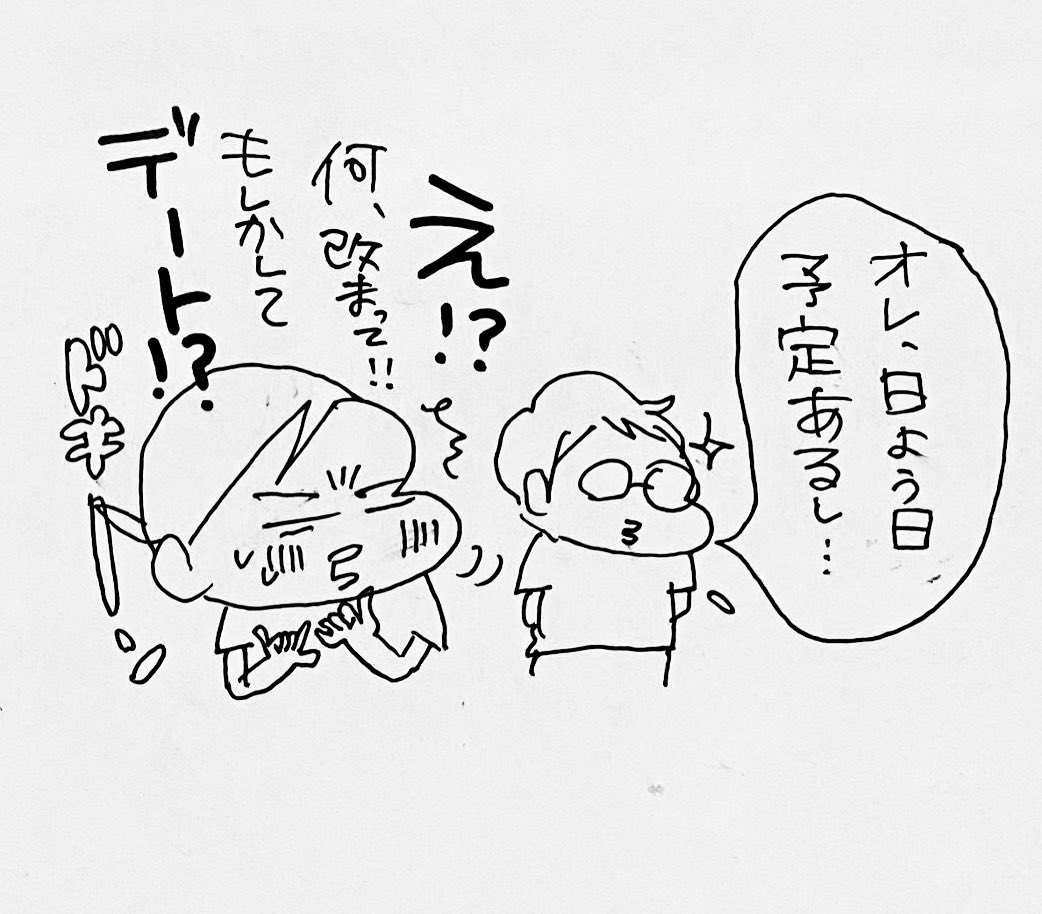 オレ、日よう日
予定あるし…
え!?
何、改まって!!
もしかして
デート!?
ドキ